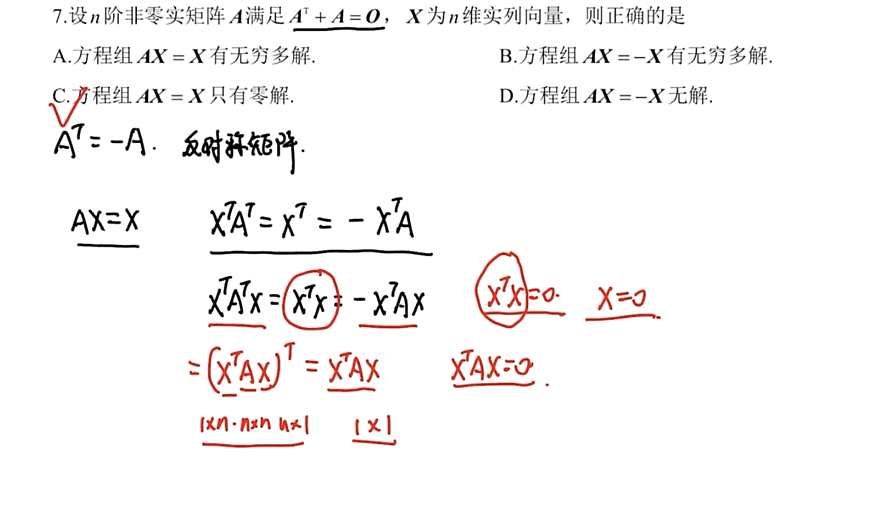 7.设n阶非零实矩阵A满足Aᵀ+A=O，X为n维实列向量，则正确的是
A.方程组AX=X有无穷多解.
B.方程组AX=-X有无穷多解.
C.方程组AX=X只有零解.
D.方程组AX=-X无解.
Aᵀ=-A. 反对称矩阵.
AX=X XᵀAᵀ=Xᵀ=-XᵀA
XᵀAᵀX=XᵀX=-XᵀAX XᵀX=0. X=0
=(XᵀAX)ᵀ=XᵀAX XᵀAX=0.
1×n·n×n n×1 1×1